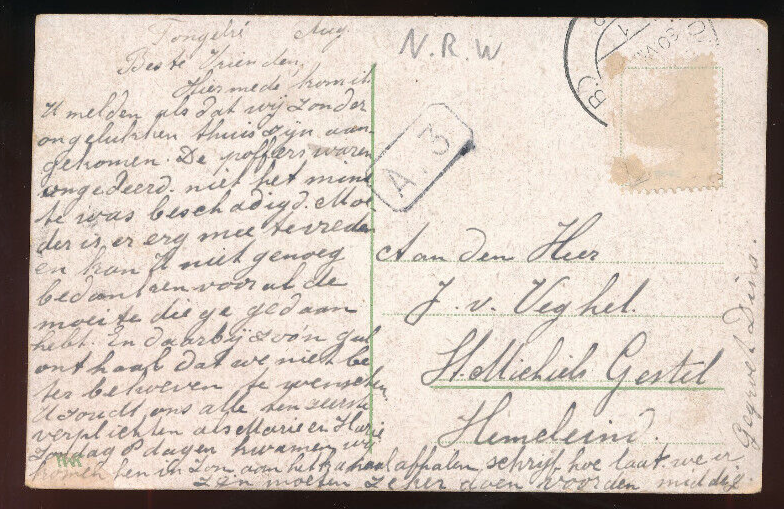 Tongelre Aug
Beste Vrienden,
Hiermede kom ik
U melden als dat wij zonder
ongelukken thuis zijn aan
gekomen. De poffers waren
ongedeerd. niet het mins
te was beschadigd. Moe
der is er erg mee tevreden
en kan U niet genoeg
bedanken voor al de
moeite die ge gedaan
hebt. En daarbij zoo'n gul
onthaal dat we niet be
ter behoeven te wenschen
U zoudt ons alle ten zeerste
verplichten als Marie en
Zondag 8 dagen kwamen
komen hen in Zon aan het kanaal afhalen, schrijf hoe laat we er
zen moeten zeker doen voor den middag.
N.R.W
A.3
Aan den Heer
J. v. Veghel.
St. Michiels Gestel
Hemeleind.
Gegroet Dina.